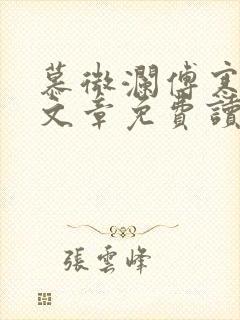 慕微瀾傅寒
文章免費讀
張雲峰